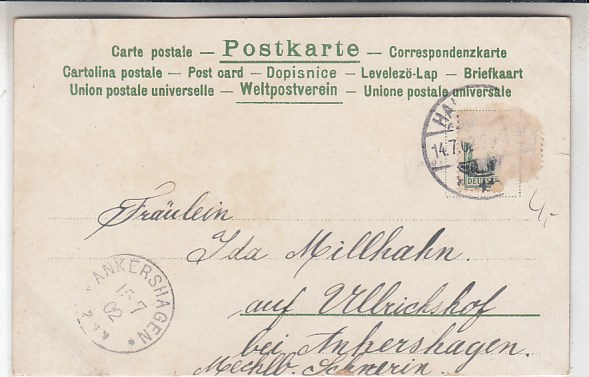 Carte postale — Postkarte — Correspondenzkarte
Cartolina postale — Post card — Dopisnice — Levelezö-Lap — Briefkaart
Union postale universelle — Weltpostverein — Unione postale universale
HA
14.7.0
DEUTS
Fräulein
Ida Millhahn.
auf Ullrichshof
bei Ankershagen.
Mecklb. Schwerin.
ANKERSHAGEN *
15 7
02
4-